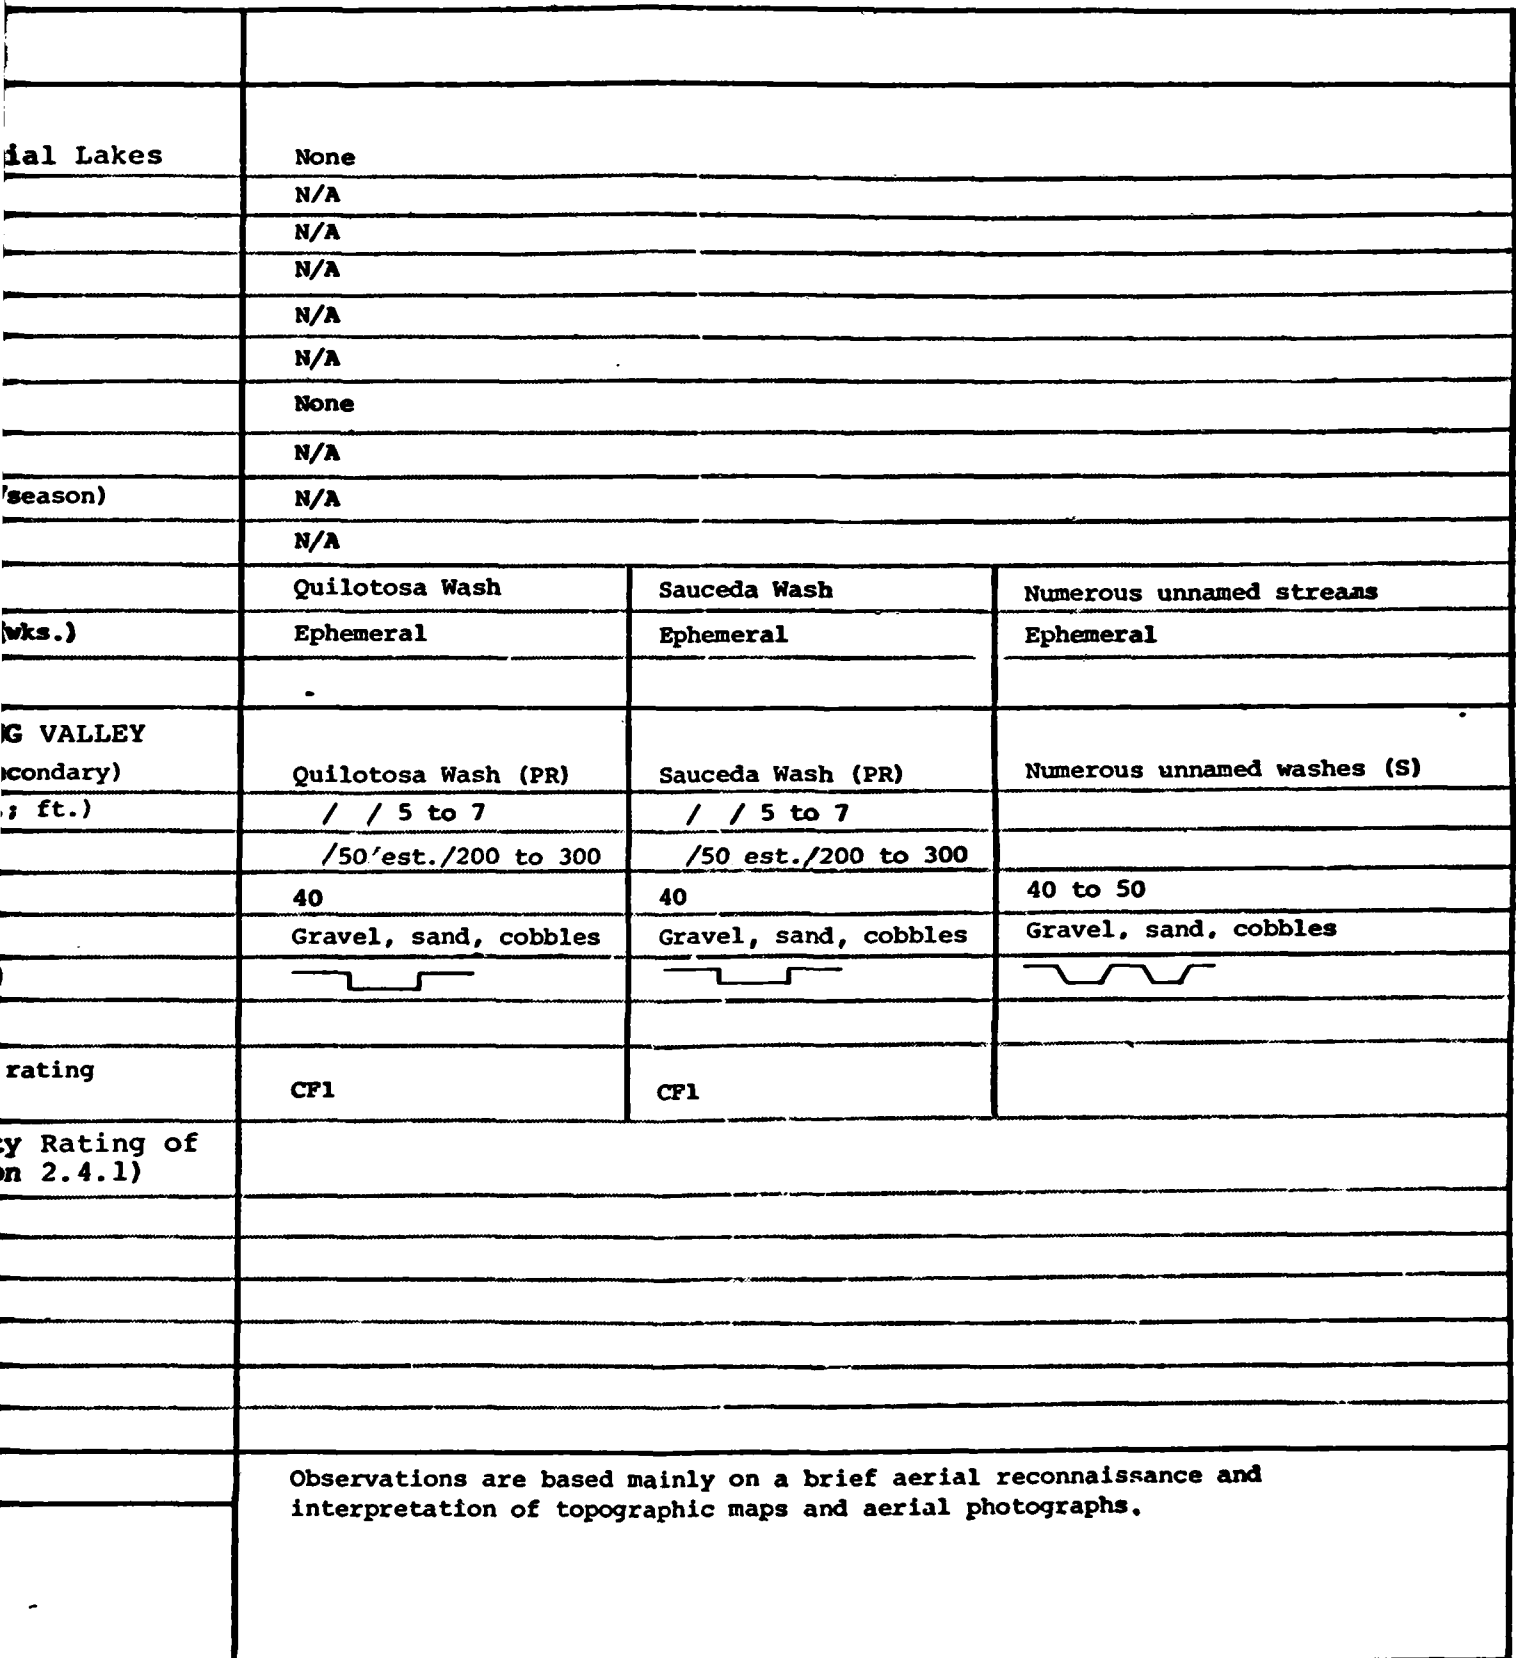 ial Lakes None
N/A
N/A
N/A
N/A
N/A
None
N/A
season) N/A
N/A
Quilotosa Wash Sauceda Wash Numerous unnamed streams
wks.) Ephemeral Ephemeral Ephemeral
G VALLEY
condary) Quilotosa Wash (PR) Sauceda Wash (PR) Numerous unnamed washes (S)
; ft.) / / 5 to 7 / / 5 to 7
/50'est./200 to 300 /50 est./200 to 300
40 40 40 to 50
Gravel, sand, cobbles Gravel, sand, cobbles Gravel, sand, cobbles
)
rating CF1 CF1
y Rating of
on 2.4.1)
Observations are based mainly on a brief aerial reconnaissance and
interpretation of topographic maps and aerial photographs.